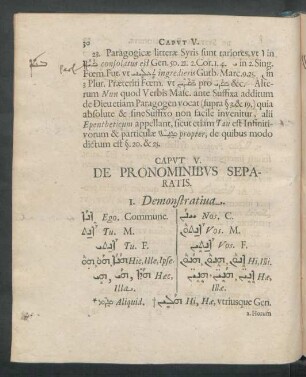 30 CAPVT V.
22. Paragogicæ litteræ Syris sunt rariores, ut ܐ in
consolatus est Gen. 50. 21. 2. Cor. 1. 4. in 2. Sing.
Fœm. Fut. ut ingredieris Gutb. Marc. 9. 25. in
3 Plur. Præteriti Fœm. ut pro &c. Alic-
rum Nun quod Verbis Masc. ante Suffixa additum
de Dieu etiam Paragogen vocat (supra § 2 & 19.) quia
absolute & sine Suffixo non facile invenitur, alii
Epentheticum appellant, sicut etiam Tau est Infiniti-
vorum & particulæ propter, de quibus modo
dictum est § 20. & 21.
CAPVT V.
DE PRONOMINIBVS SEPA-
RATIS.
1. Demonstrativa.
ܐܢܐ Ego. Commune. ܚܢܢ Nos. C.
ܐܢܬ Tu. M. ܐܢܬܘܢ Vos. M.
ܐܢܬܝ Tu. F. ܐܢܬܝܢ Vos. F.
Hic, Ille, Ipse Hi, Isti
Hæc, Hæ,
Illa. Illæ.
Aliquid. † Hi, Hæ, utriusque Gen.